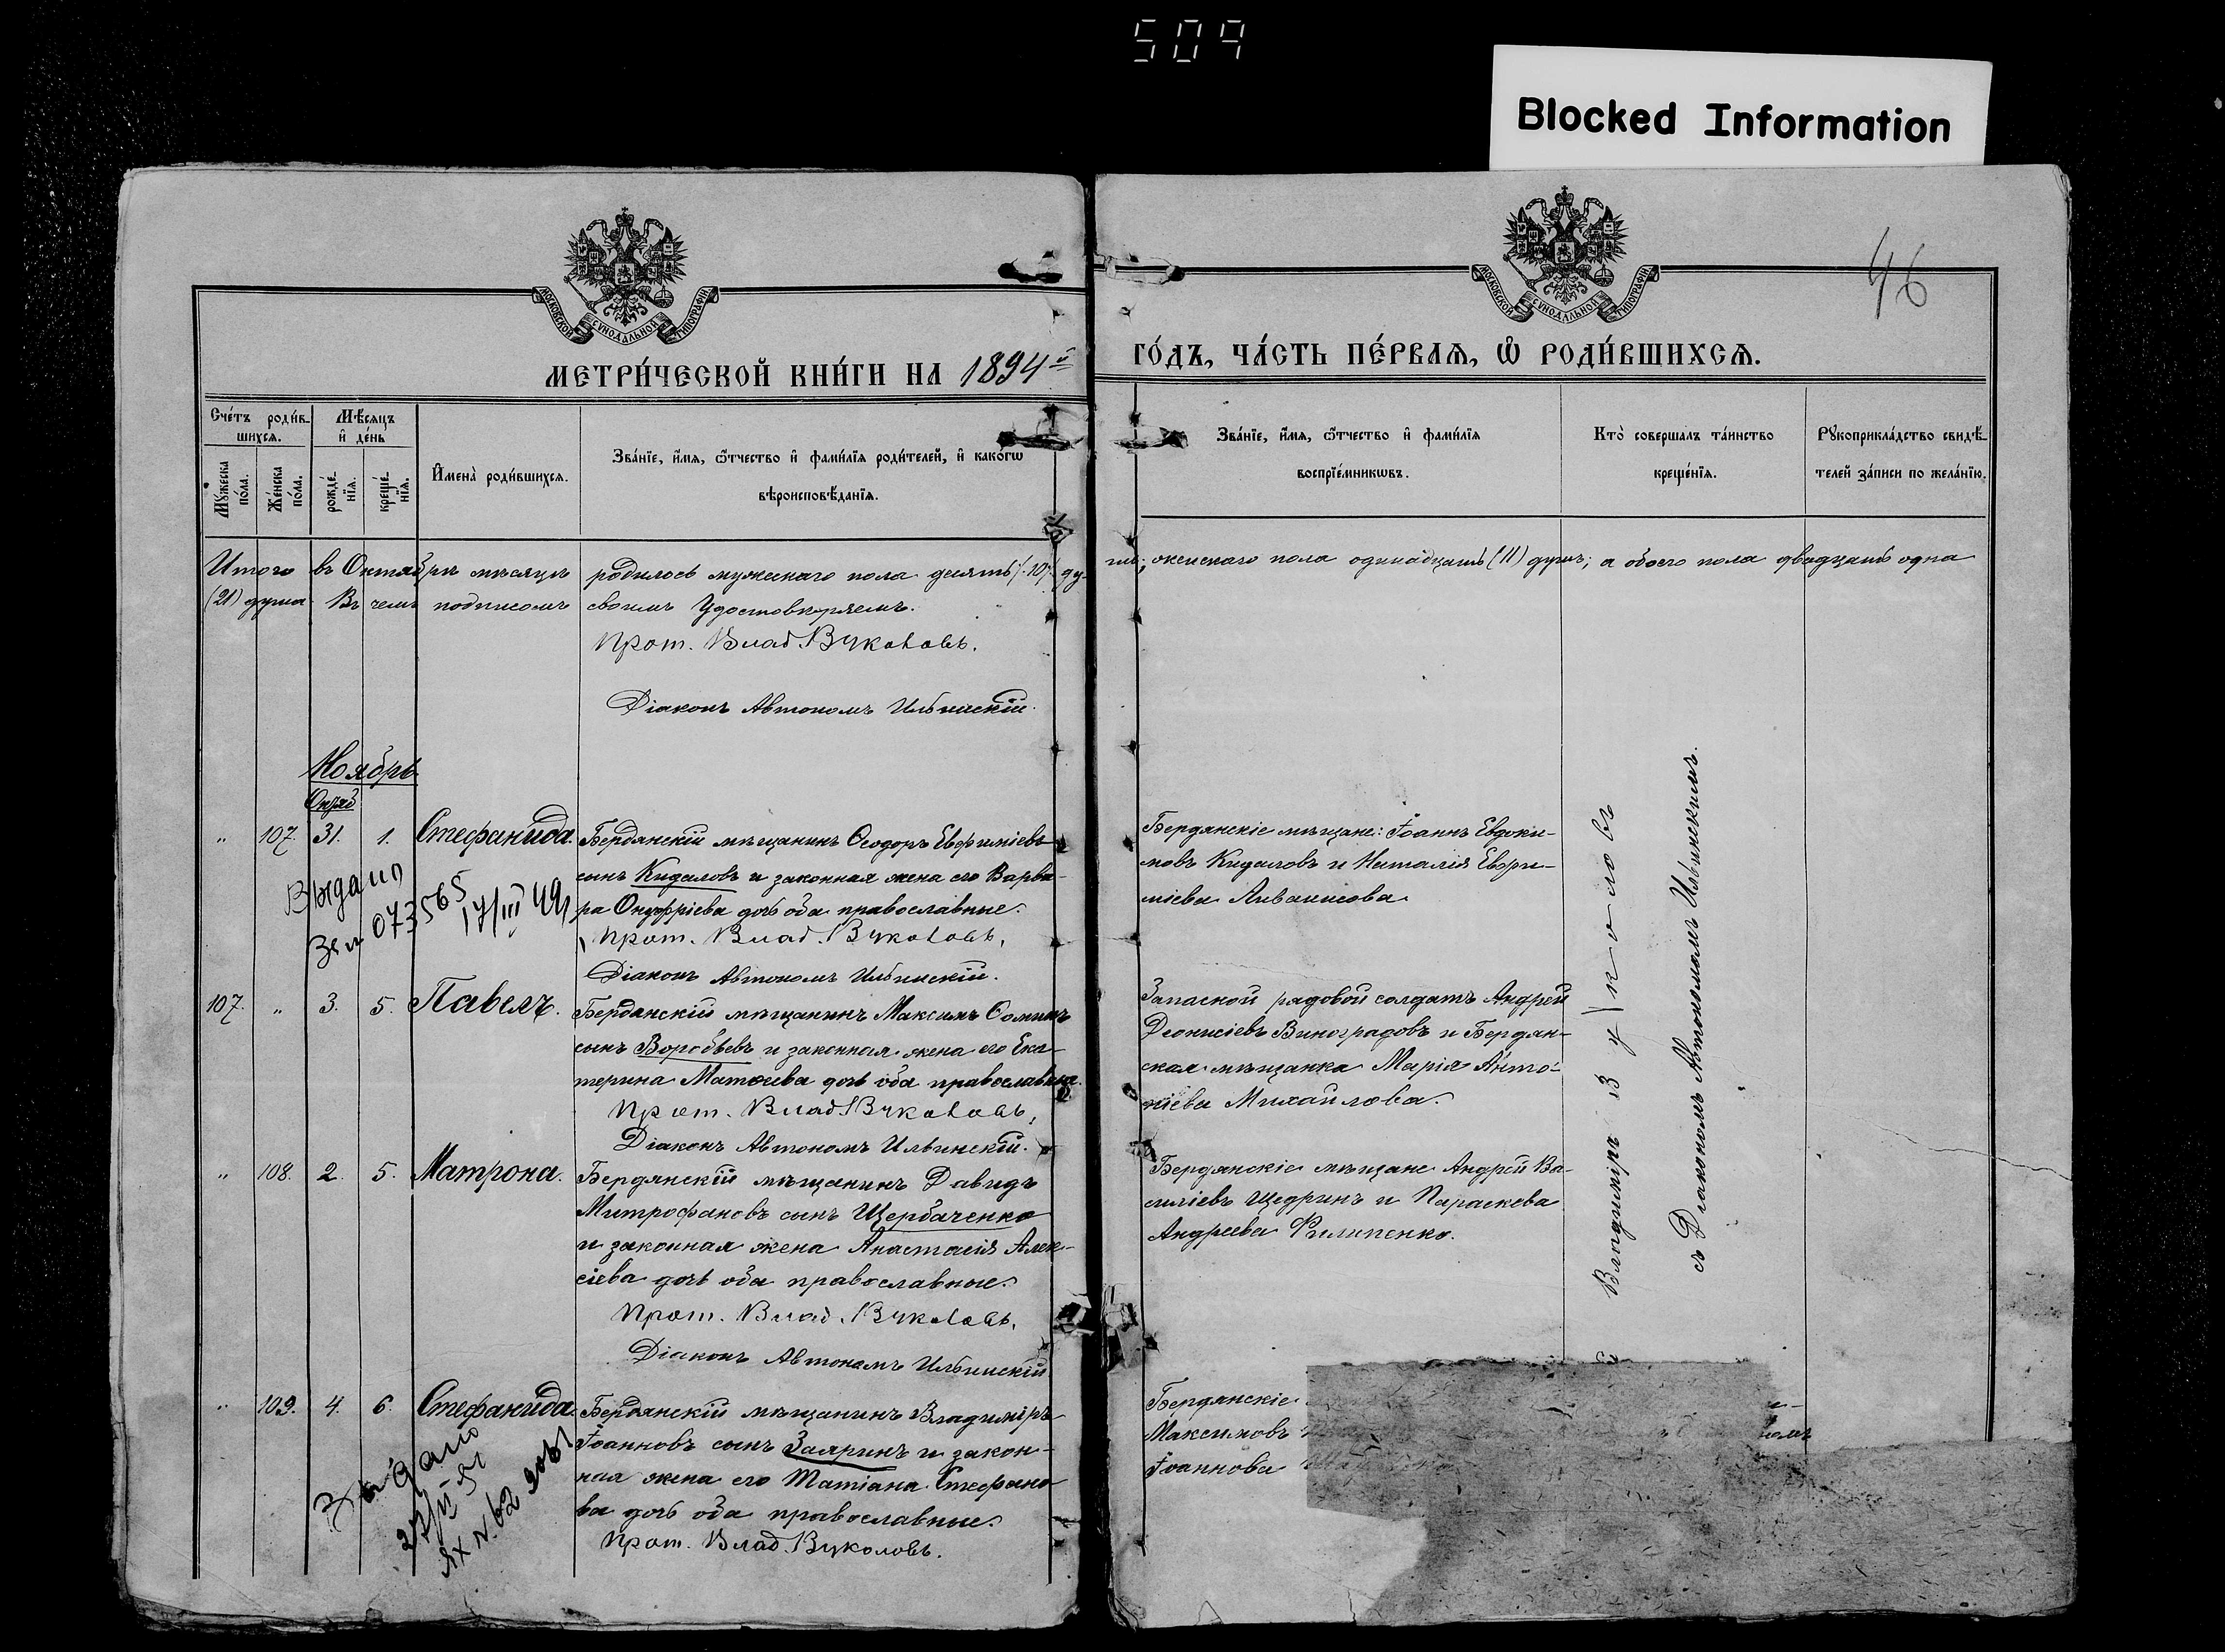 509
Blocked Information
46
МОСКОВСКОЙ СѴНОДАЛЬНОЙ ТИПОГРАФІИ
МОСКОВСКОЙ СѴНОДАЛЬНОЙ ТИПОГРАФІИ
МЕТРИ́ЧЕСКОЙ КНИ́ГИ НА 1894й ГО́ДЪ, ЧА́СТЬ ПЕ́РВАѦ, Ѡ҆ РОДИ́ВШИХСѦ.
Сче́тъ роди́в-
шихсѧ.
Мꙋ́жеска по́ла.
Же́нска по́ла.
Мѣ́сѧцъ
и҆ де́нь
рожде́-
нїѧ.
креще́-
нїѧ.
И҆мена̀ роди́вшихсѧ.
Зва́нїе, и҆́мѧ, ѻ҆́тчество и҆ фами́лїѧ роди́телей, и҆ како́гѡ
вѣроисповѣ́данїѧ.
Зва́нїе, и҆́мѧ, ѻ҆́тчество и҆ фами́лїѧ
воспрїе́мникѡвъ.
Кто̀ соверша́лъ та́инство
креще́нїѧ.
Рꙋкоприкла́дство свидѣ́-
телей за́писи по жела́нїю.
Итого въ Октябрѣ мѣсяцѣ родилось мужескаго пола десять (10) ду-
шъ; женскаго пола одинадцать (11) душъ; а обоего пола двадцать одна
(21) душа. Въ чемъ подписомъ своимъ удостовѣряемъ.
Прот. Влад. Вуколовъ.
Діаконъ Автономъ Ильинскій.
Ноябрь
Октяб
" 107. 31. 1. Стефанида.
Бердянскій мѣщанинъ Ѳеодоръ Евфиміевъ
сынъ Кидаловъ и законная жена его Варва-
ра Онуфріева дочь оба православные.
Прот. Влад. Вуколовъ.
Діаконъ Автономъ Ильинскій.
Бердянскіе мѣщане: Іоаннъ Евдоки-
мовъ Кидаловъ и Наталія Евфи-
міева
Выдано
073565
17/III 49
107. " 3. 5. Павелъ.
Бердянскій мѣщанинъ Максимъ Ѳоминъ
сынъ Воробьевъ и законная жена его Ека-
терина Матѳіева дочь оба православные.
Прот. Влад. Вуколовъ.
Діаконъ Автономъ Ильинскій.
Запасной рядовой солдатъ Андрей
Діонисіевъ Виноградовъ и Бердян-
ская мѣщанка Марія Анто-
ніева Михайлова.
" 108. 2. 5. Матрона.
Бердянскій мѣщанинъ Давидъ
Митрофановъ сынъ Щербаченко
и законная жена Анастасія Алек-
сіева дочь оба православные.
Прот. Влад. Вуколовъ.
Діаконъ Автономъ Ильинскій
Бердянскіе мѣщане Андрей Ва-
силіевъ Щедринъ и Параскева
Андреева Филипенко.
" 109. 4. 6. Стефанида.
Бердянскій мѣщанинъ Владиміръ
Іоанновъ сынъ Заяринъ и закон-
ная жена его Татіана Стефано-
ва дочь оба православные.
Прот. Влад. Вуколовъ.
Бердянскіе
Максимовъ
Іоаннова
Владиміръ Вуколовъ
съ Діакономъ Автономомъ Ильинскимъ.